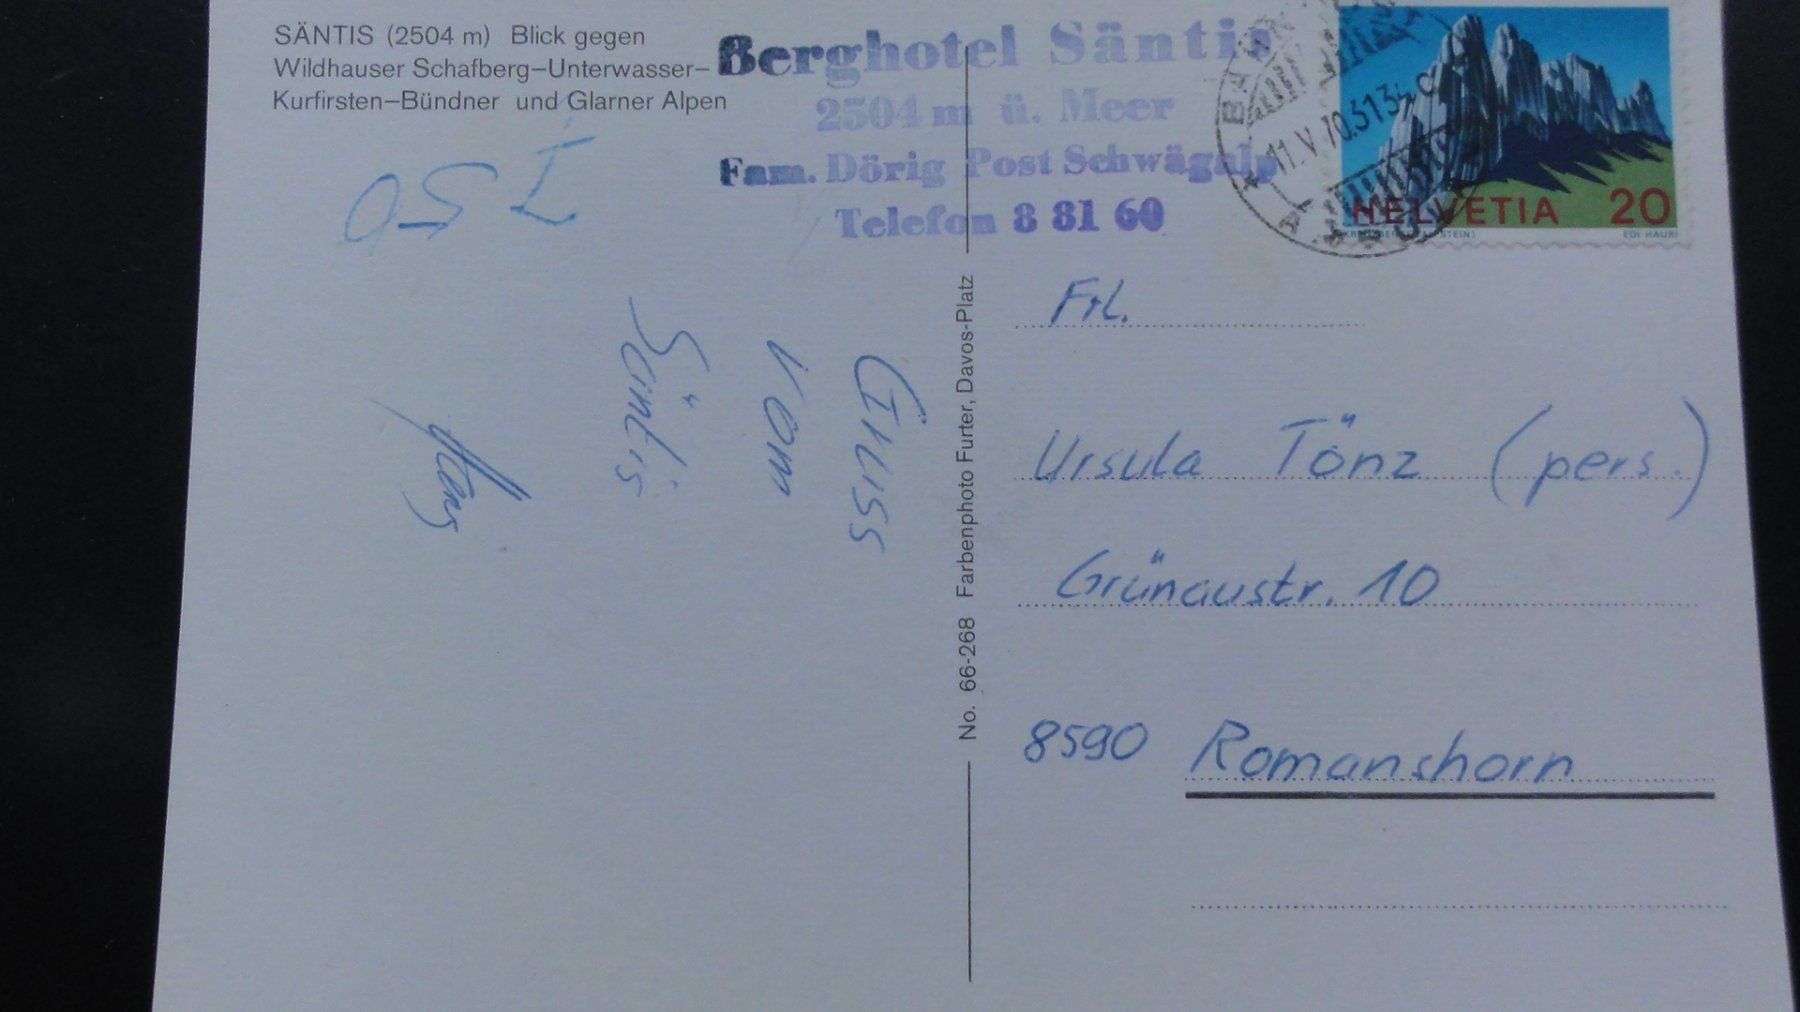 SÄNTIS (2504 m) Blick gegen
Wildhauser Schafberg–Unterwasser–
Kurfirsten–Bündner und Glarner Alpen
Berghotel Säntis
2504 m ü. Meer
Fam. Dörig Post Schwägalp
Telefon 8 81 60
11.V.70
HELVETIA 20
EDI HAURI
Gruss
vom
Säntis
No. 66-268 Farbenphoto Furter, Davos-Platz
Frl.
Ursula Tönz (pers.)
Grünaustr. 10
8590 Romanshorn